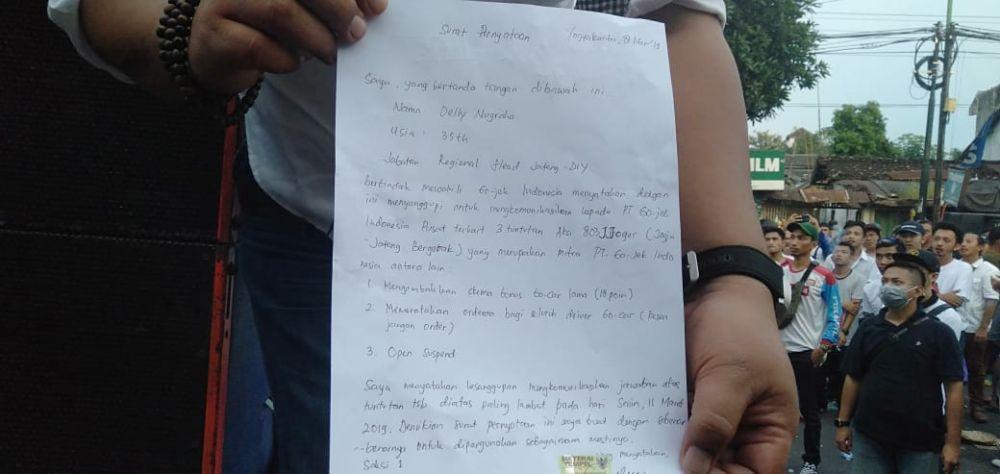 Surat Pernyataan
Yogyakarta, Mar '19
Saya, yang bertanda tangan dibawah ini
Nama Delly Nugraha
Usia : 35 th
Jabatan Regional Head Jateng - DIY
bertindak mewakili Go-jek Indonesia menyatakan dengan
ini menyanggupi untuk mengkomunikasikan kepada PT Go-jek
Indonesia Pusat terkait 3 tuntutan Aksi Joger (Jogja
Jateng Bergerak) yang merupakan mitra PT. Go-Jek Indo
nesia antara lain
1. Mengembalikan skema bonus Go-car lama (18 poin)
2. Memeratakan orderan bagi seluruh driver Go-car (
jangan order)
3. Open Suspend
Saya menyatakan kesanggupan mengkomunikasikan jawaban atas
tuntutan tsb diatas paling lambat pada hari Senin, 11 Maret
2019. Demikian surat pernyataan ini saya buat dengan sebenar
-benarnya untuk dipergunakan sebagaimana mestinya.
Saksi 1
menyatakan,
METERAI
TEMPEL
ILM